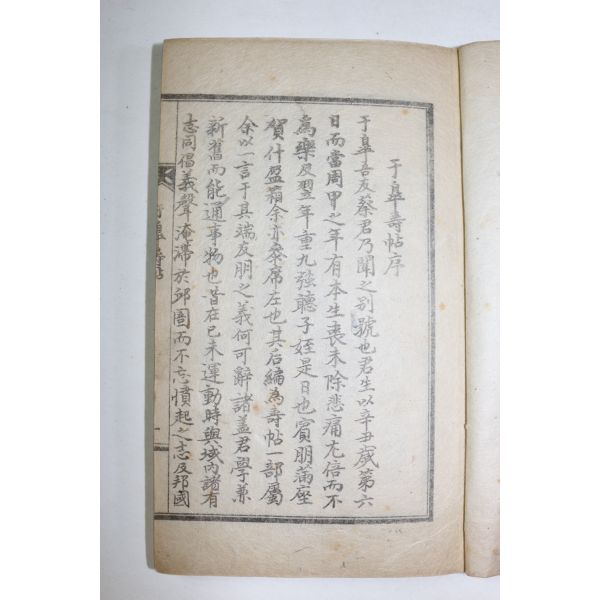 于皐壽帖序
于皐吾友蔡君乃聞之別號也君生以辛丑歲第六
日而當周甲之年有本生喪未除悲痛尤倍而不
為樂及翌年重九強聽子姪是日也賓朋滿座
賀什盈箱余亦叅席左也其后編為壽帖一部屬
余以一言于其端友朋之義何可辭諸盖君學兼
新舊而能通事物也昔在己未運動時與域內諸有
志同倡義聲淹滯於邱圄而不忘憤起之志及邦國
于皐壽帖
一